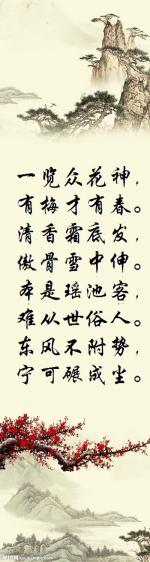 一览众花神，
有梅才有春。
清香霜底发，
傲骨雪中伸。
本是瑶池客，
难从世俗人。
东风不附势，
宁可碾成尘。